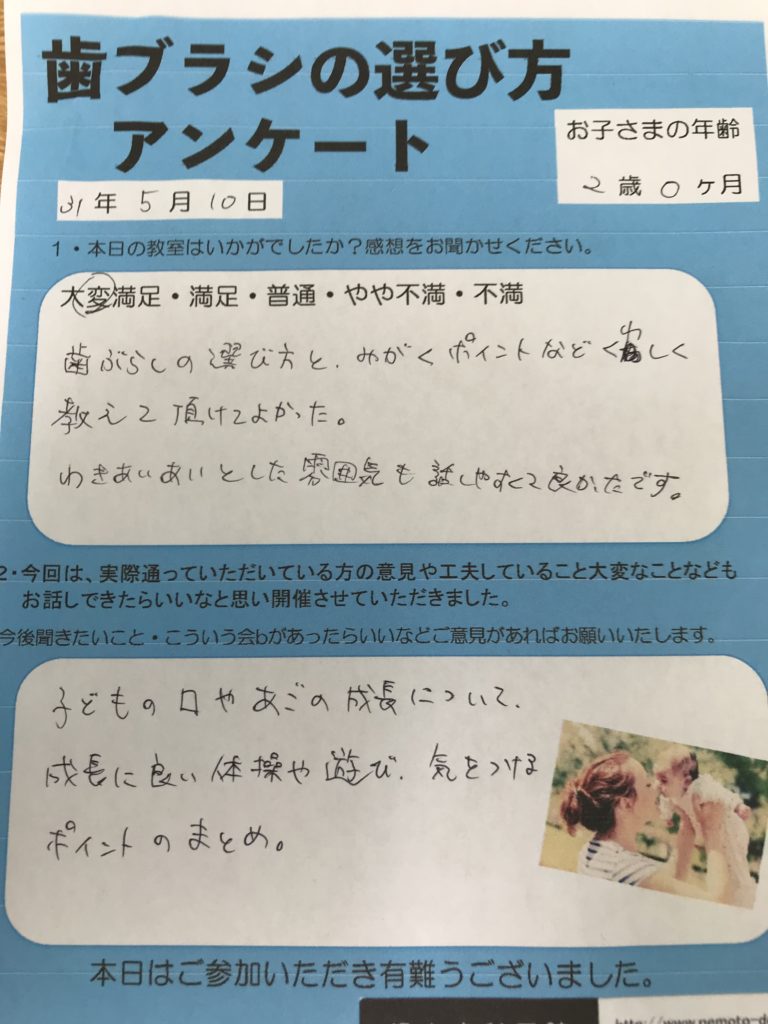 歯ブラシの選び方
アンケート
お子さまの年齢
2歳0ヶ月
31年5月10日
1・本日の教室はいかがでしたか？感想をお聞かせください。
大変満足・満足・普通・やや不満・不満
歯ぶらしの選び方と、みがくポイントなどくわしく
教えて頂けてよかった。
わきあいあいとした雰囲気も話しやすくて良かったです。
2・今回は、実際通っていただいている方の意見や工夫していること大変なことなども
お話しできたらいいなと思い開催させていただきました。
今後聞きたいこと・こういう会bがあったらいいなどご意見があればお願いいたします。
子どもの口やあごの成長について、
成長に良い体操や遊び、気をつける
ポイントのまとめ。
本日はご参加いただき有難うございました。
http://www.nemoto-d